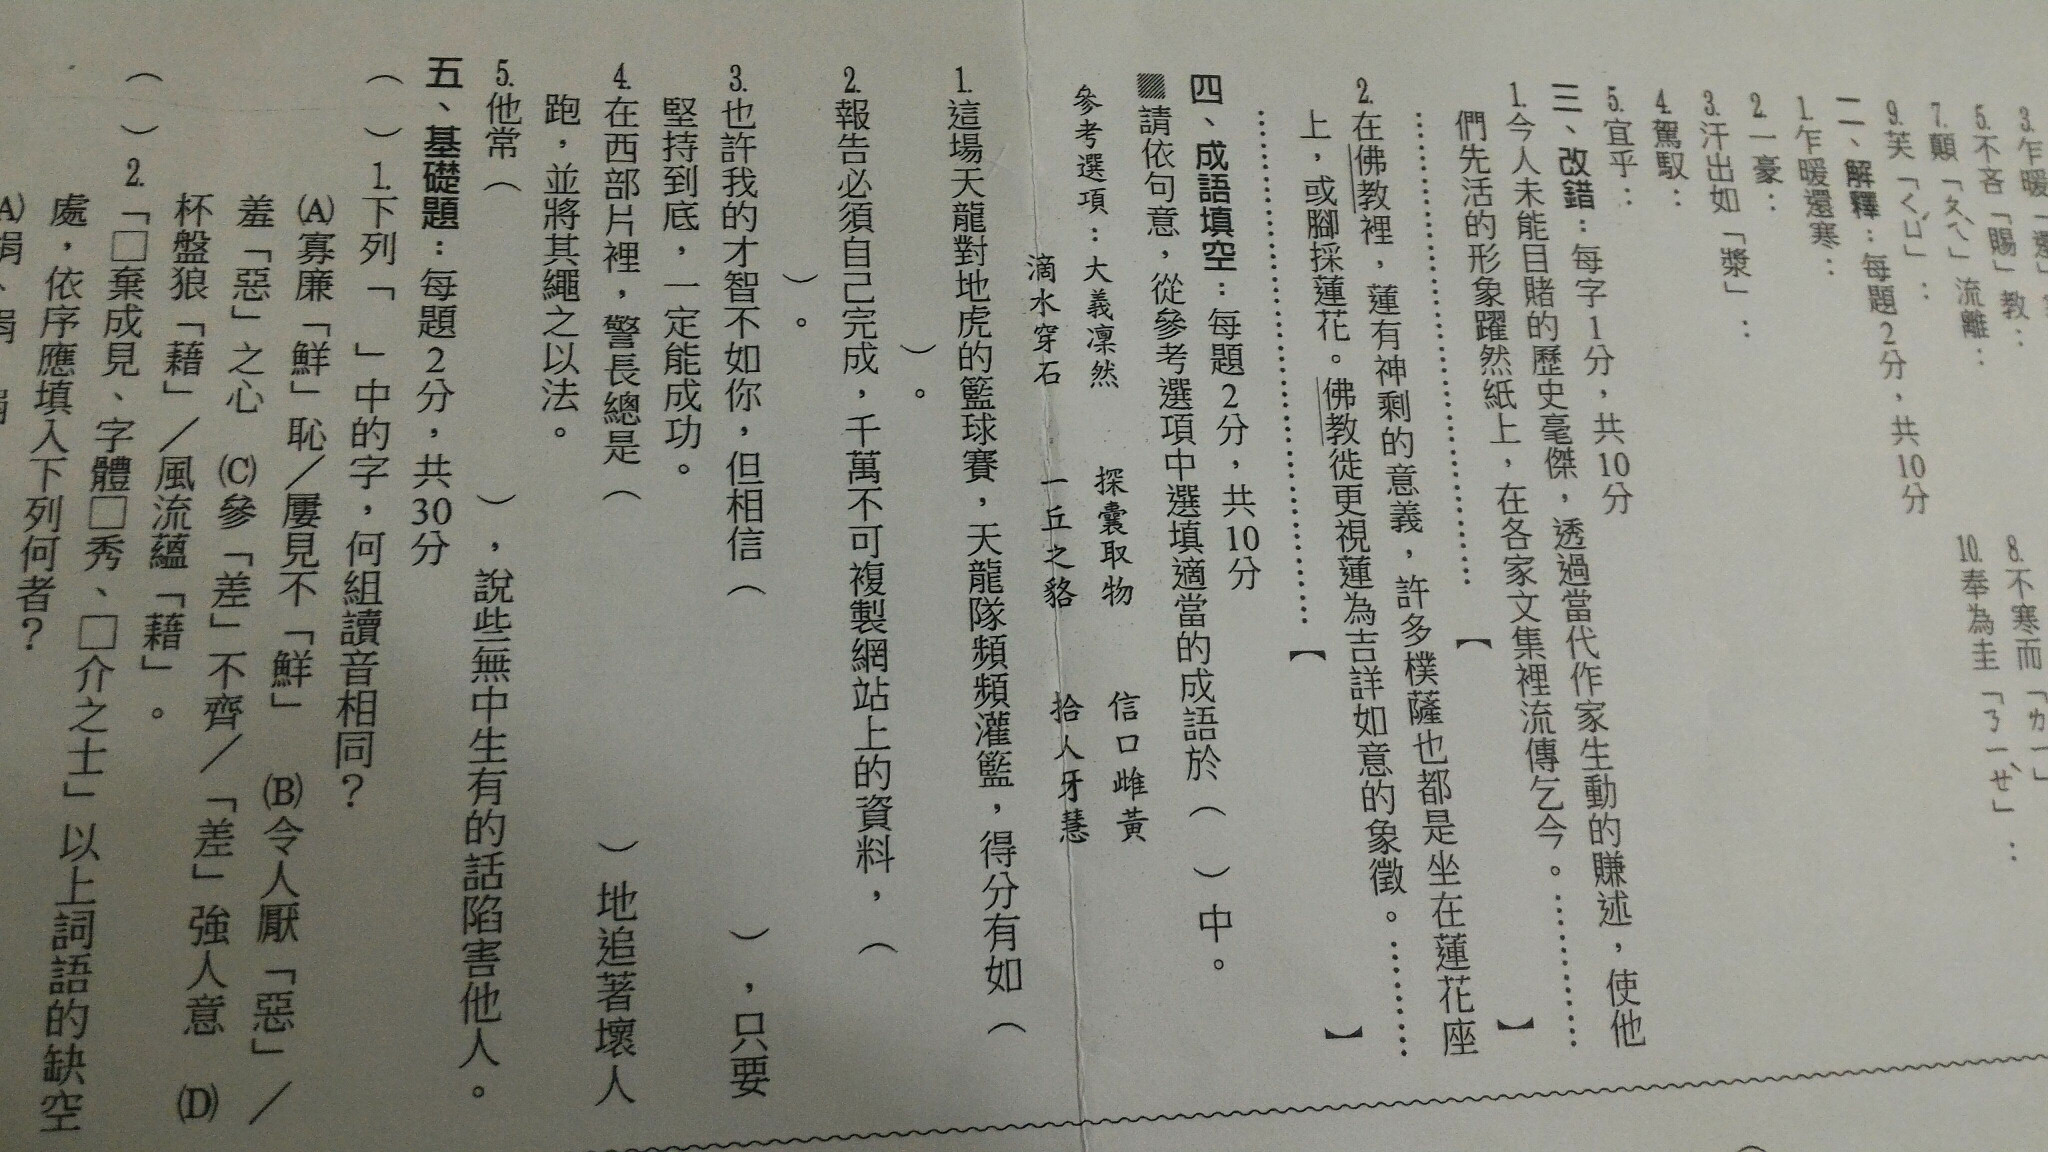 3.乍暖「還」
5.不吝「賜」教：
7.顛「ㄆㄟˋ」流離：
8.不寒而「ㄌㄧˋ」
9.芙「ㄑㄩˊ」：
10.奉為圭「ㄋㄧㄝˋ」：
二、解釋：每題2分，共10分
1.乍暖還寒：
2.一豪：
3.汗出如「漿」：
4.駕馭：
5.宜乎：
三、改錯：每字1分，共10分
1.今人未能目賭的歷史毫傑，透過當代作家生動的賺述，使他
們先活的形象躍然紙上，在各家文集裡流傳乞今。…………
…………………………………【　　　　　　　　　　】
2.在佛教裡，蓮有神剩的意義，許多樸薩也都是坐在蓮花座
上，或腳採蓮花。佛教徙更視蓮為吉詳如意的象徵。…………
…………………………………【　　　　　　　　　　】
四、成語填空：每題2分，共10分
■請依句意，從參考選項中選填適當的成語於（　）中。
參考選項：大義凜然　探囊取物　信口雌黃
滴水穿石　一丘之貉　拾人牙慧
1.這場天龍對地虎的籃球賽，天龍隊頻頻灌籃，得分有如（
　　　　　　　）。
2.報告必須自己完成，千萬不可複製網站上的資料，（
　　　　　　　）。
3.也許我的才智不如你，但相信（　　　　　　　），只要
堅持到底，一定能成功。
4.在西部片裡，警長總是（　　　　　　　）地追著壞人
跑，並將其繩之以法。
5.他常（　　　　　　　），說些無中生有的話陷害他人。
五、基礎題：每題2分，共30分
（　）1.下列「　」中的字，何組讀音相同？
(A)寡廉「鮮」恥／屢見不「鮮」　(B)令人厭「惡」／
羞「惡」之心　(C)參「差」不齊／「差」強人意　(D)
杯盤狼「藉」／風流蘊「藉」。
（　）2.「□棄成見、字體□秀、□介之士」以上詞語的缺空
處，依序應填入下列何者？